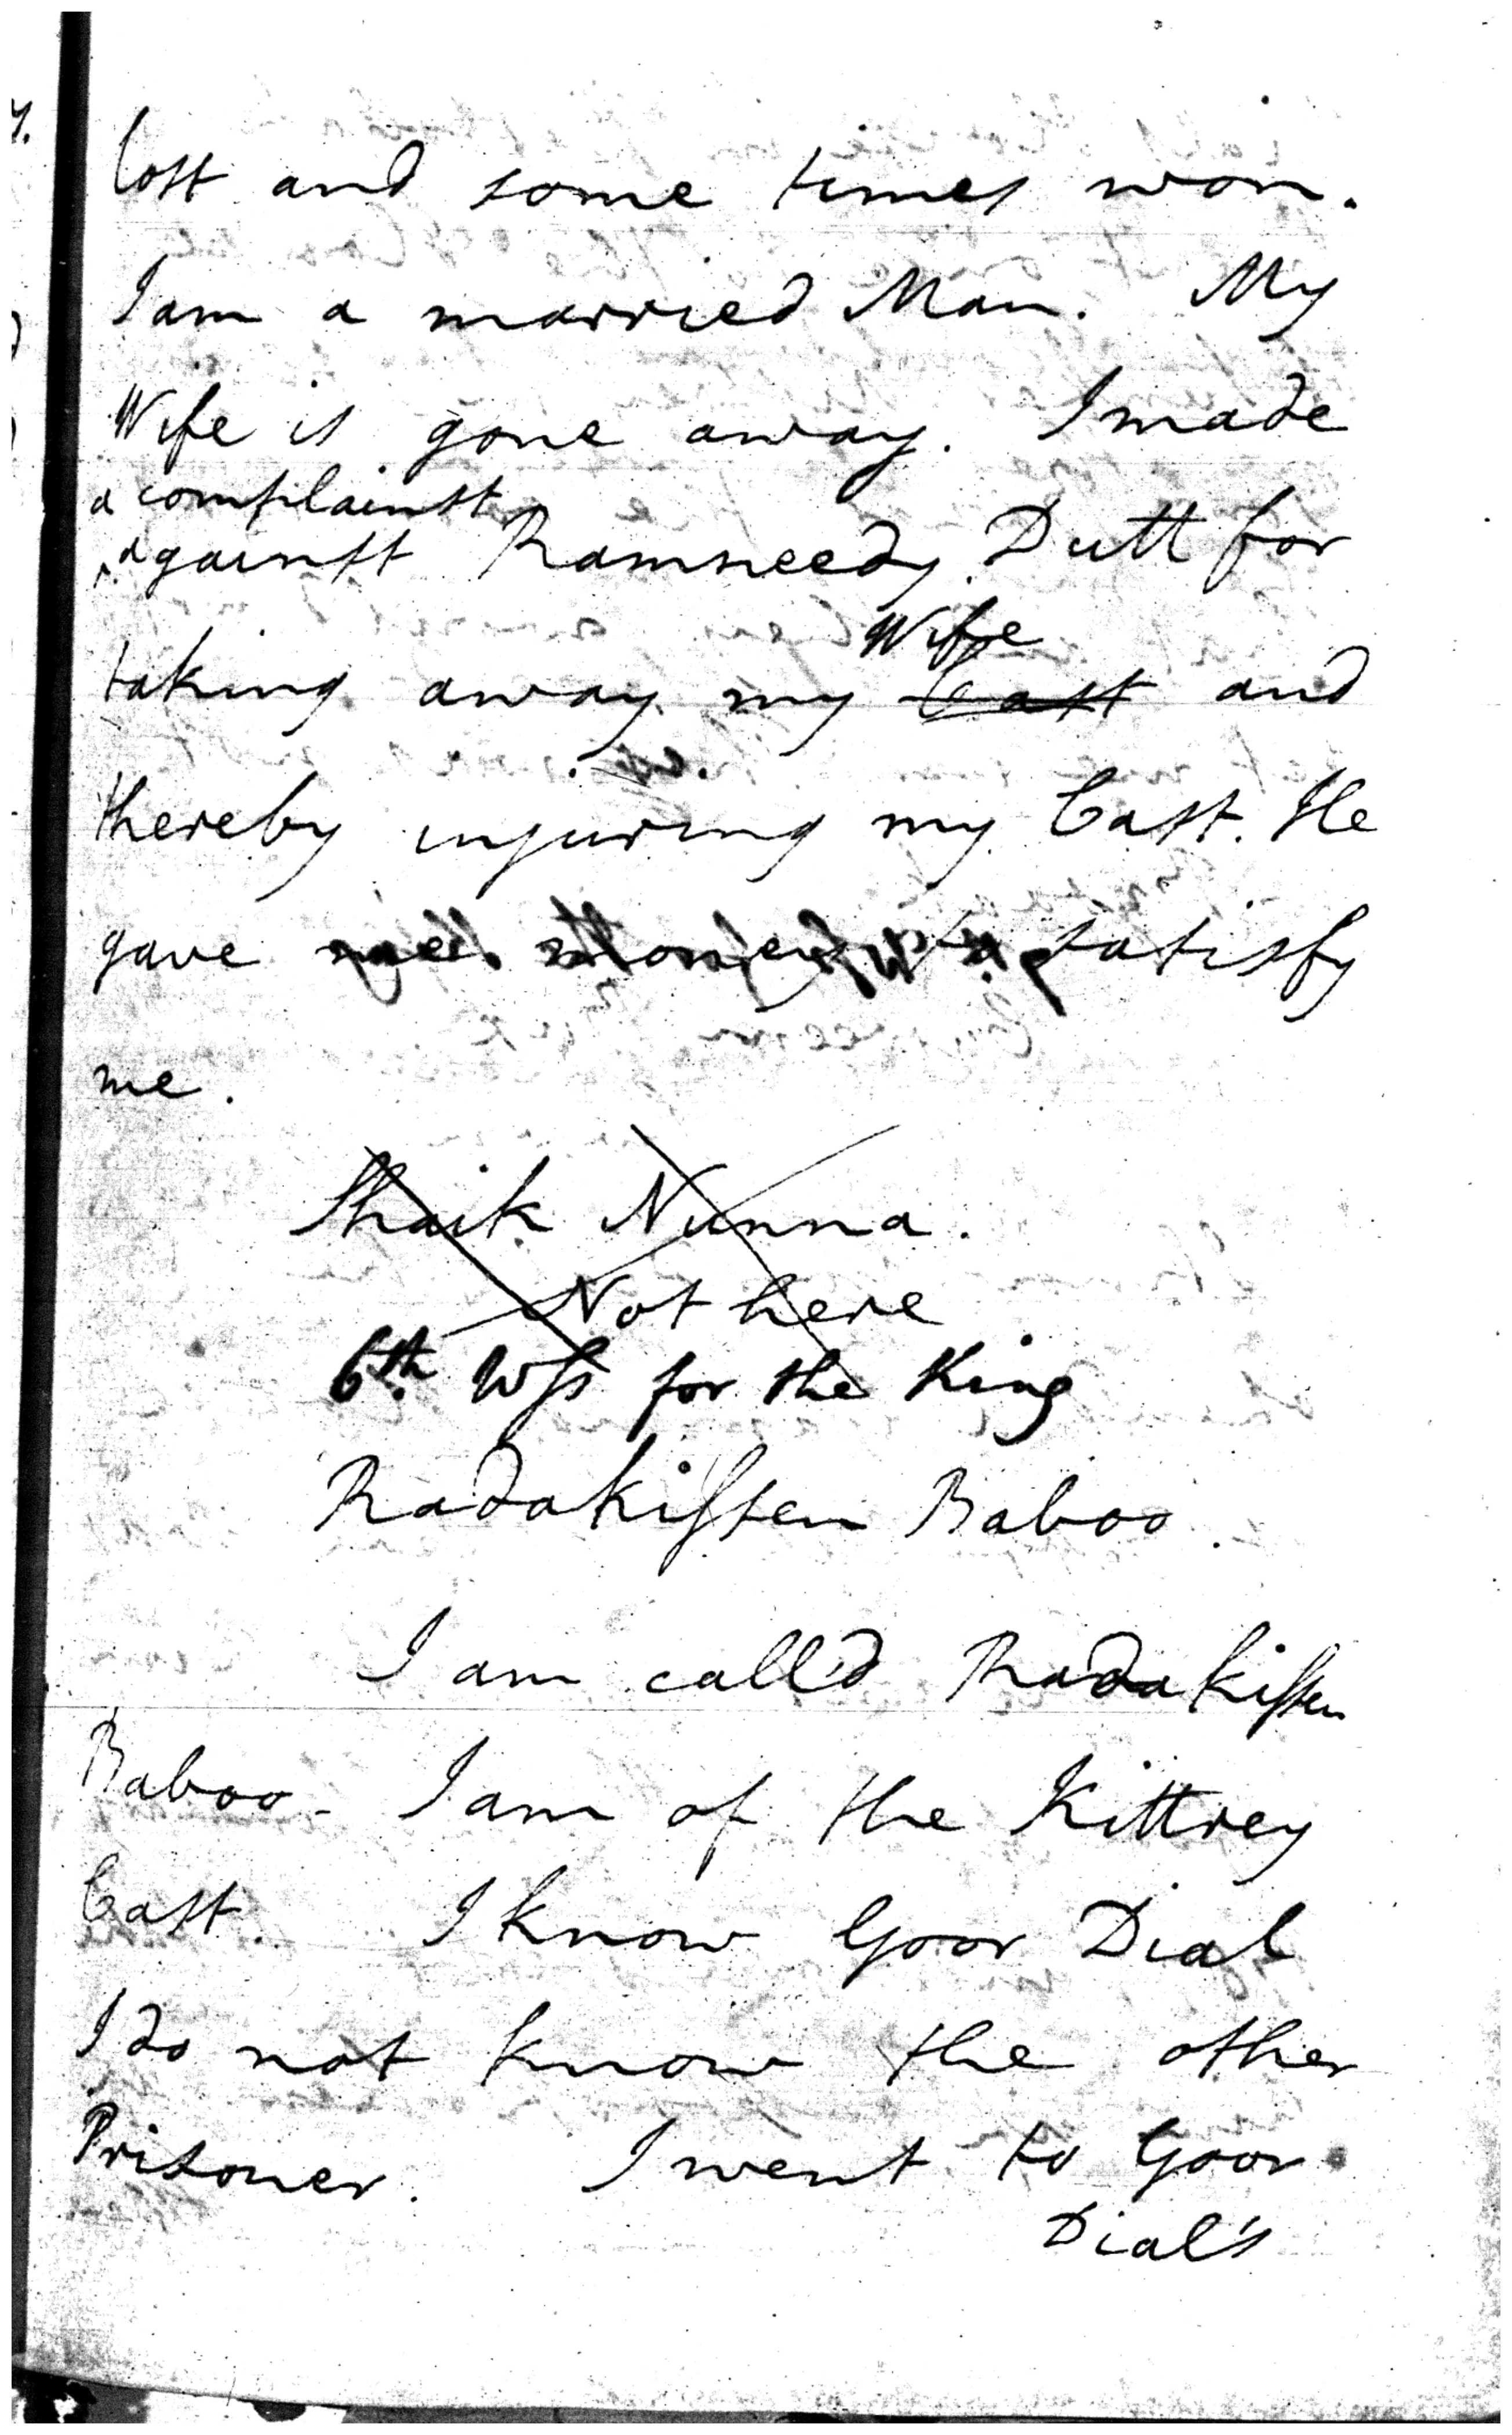 lost and some times won.
I am a married Man. My
Wife is gone away. I made
a complainst
against Ramneedy Dutt for
Wife
taking away my Cast and
thereby injuring my Cast. He
gave me money to satisfy
me.
Shaik Nunna.
Not here
6th. Wss for the King
Radakissen Baboo.
I am call'd Radakissen
Baboo - I am of the Kittrey
Cast. I know Goor Dial
I do not know the other
Prisoner. I went to Goor
Dial's